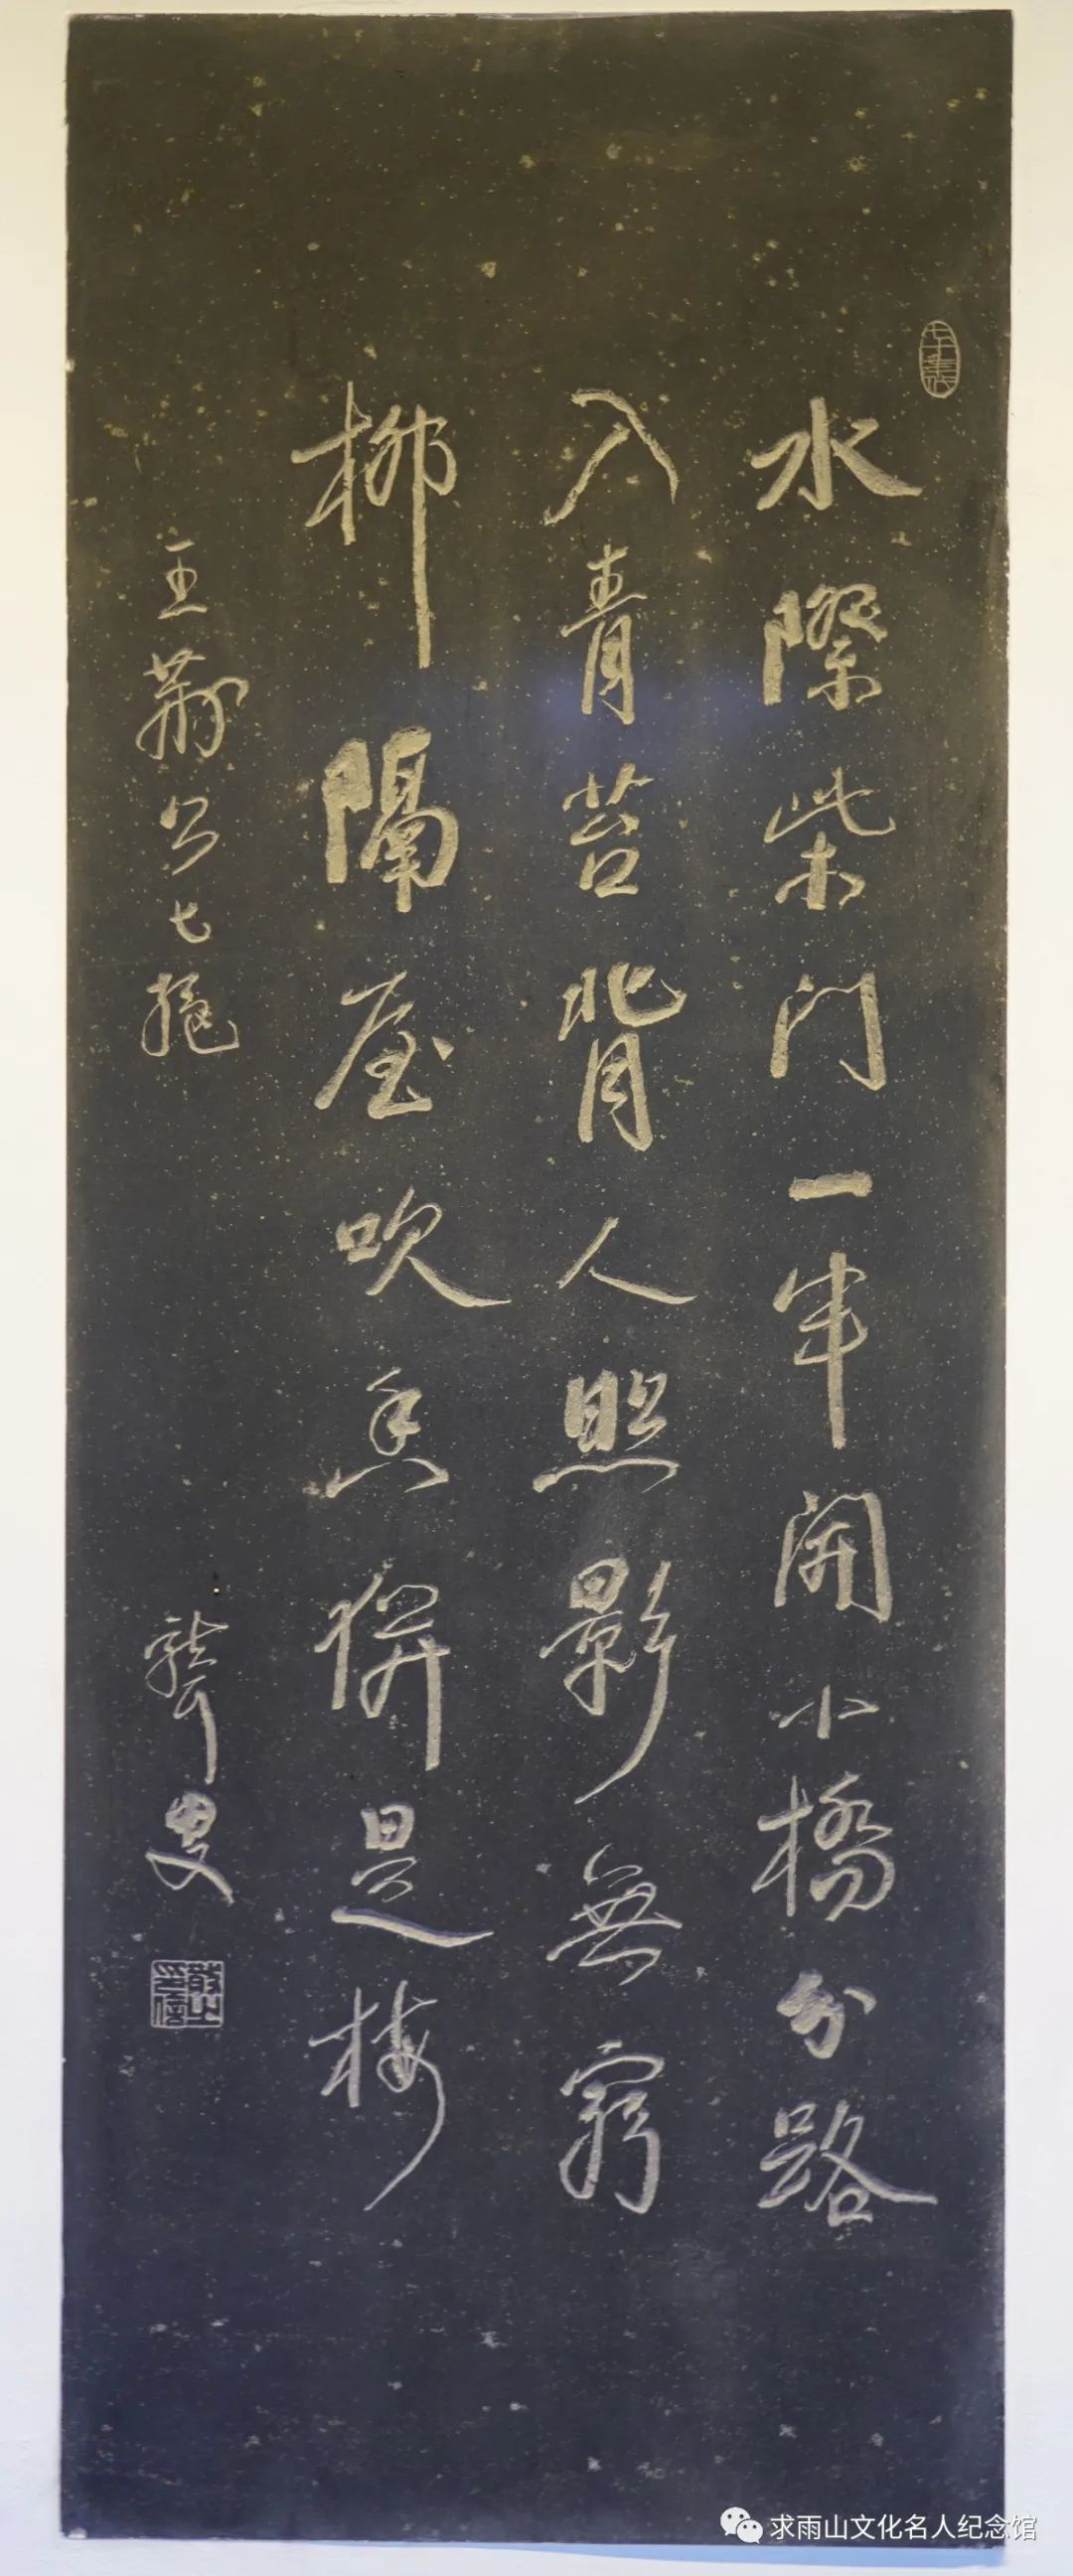 水際柴門一半開小橋分路
入青苔背人照影無窮
柳隔屋吹香併是梅
王荊公七絕
聾叟
散之信印
求雨山文化名人纪念馆